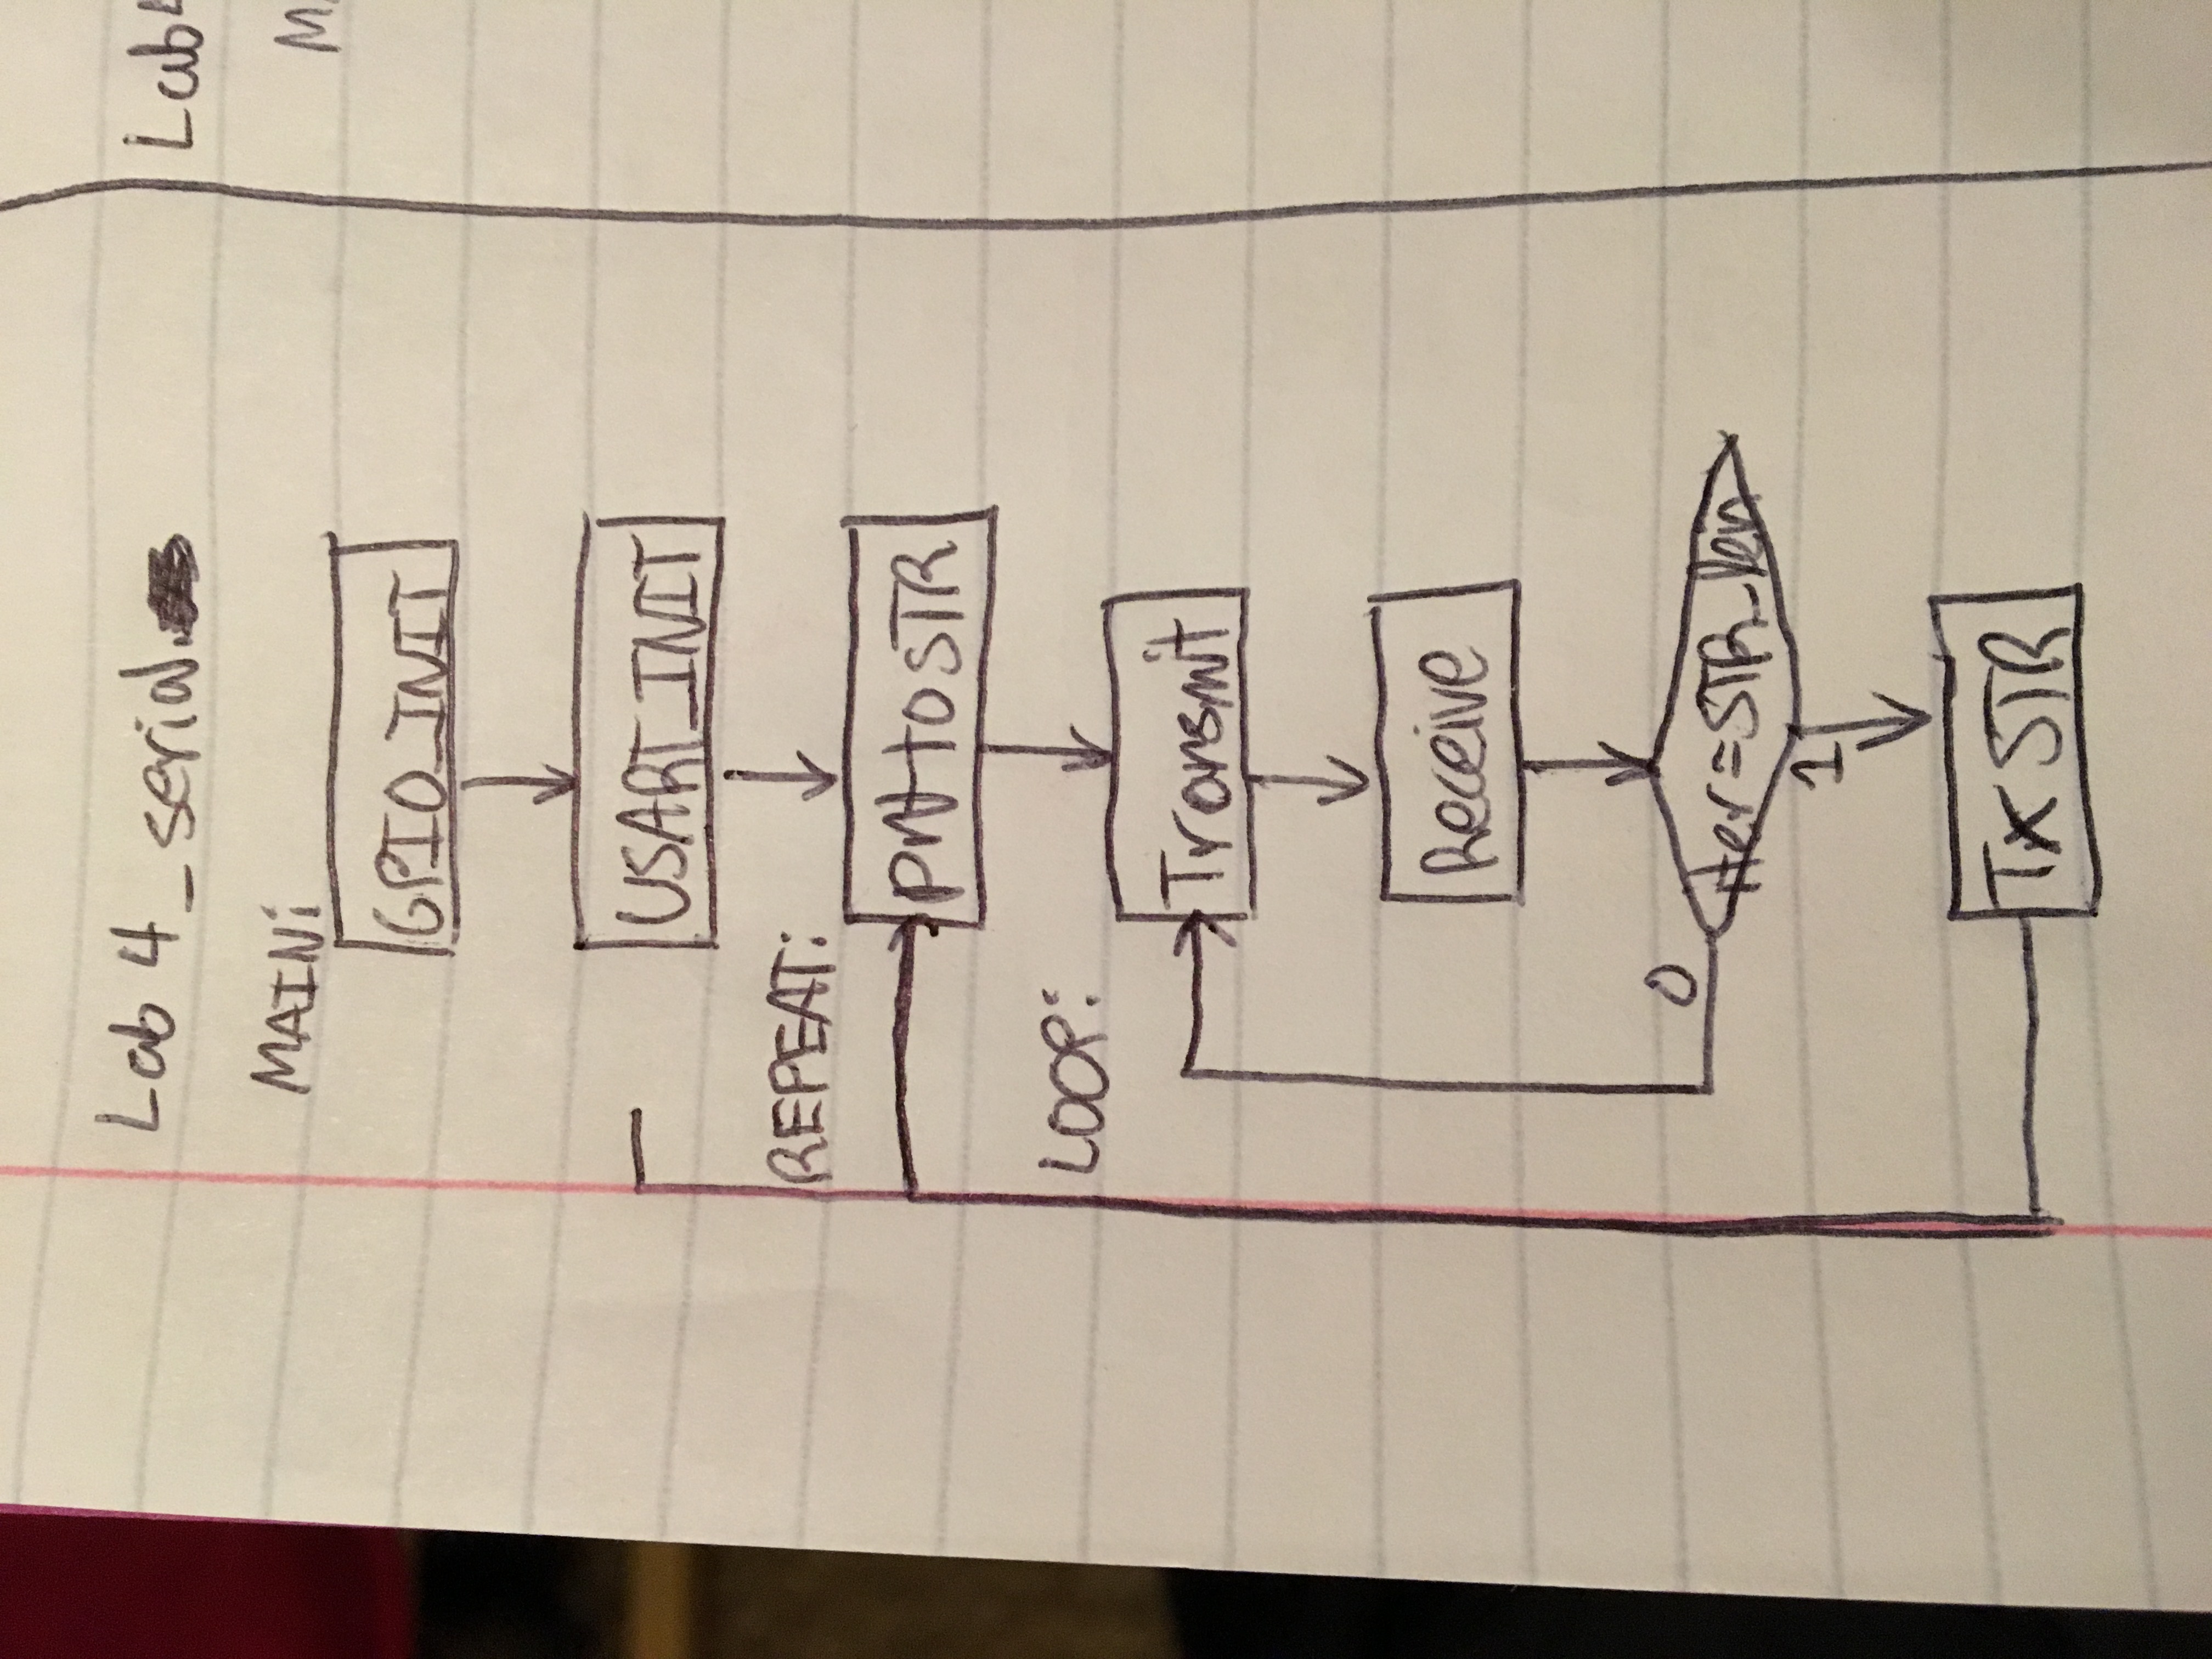 Lab 4_serial.
Lab4
MAIN:
GPIO_INIT
USART_INIT
REPEAT:
to STR
LOOP:
Transmit
Receive
0
iter=STR_len
1
Tx STR